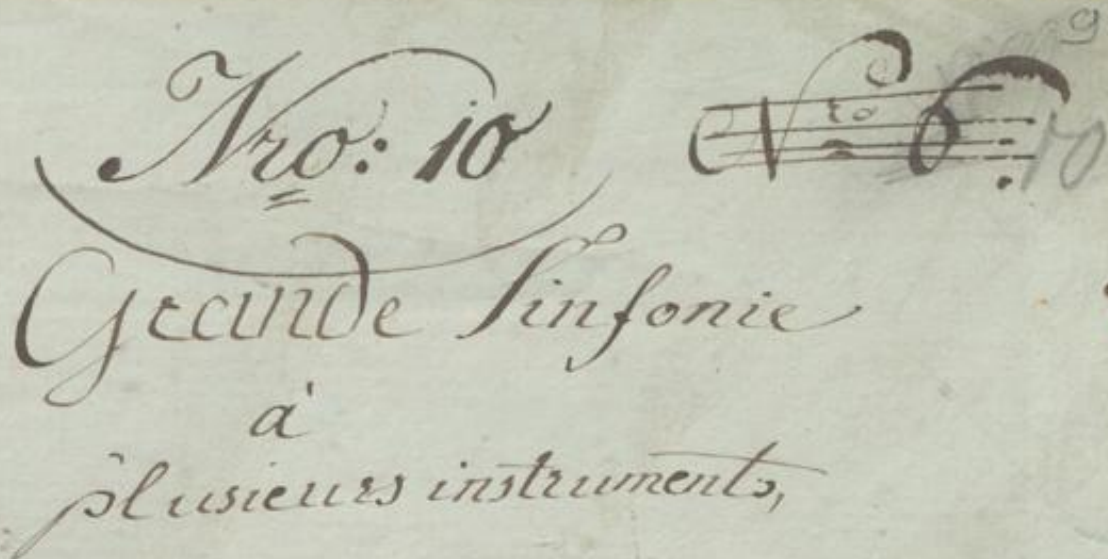 Nro: 10
Nro 6.
10
9
Grande Sinfonie
à
plusieurs instruments,